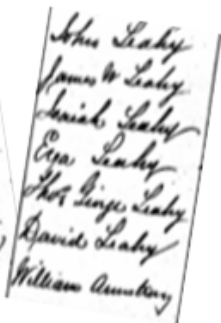 John Leahy
James W Leahy
Isaiah Leahy
Ezra Leahy
Thos Leahy
David Leahy
William Armstrong